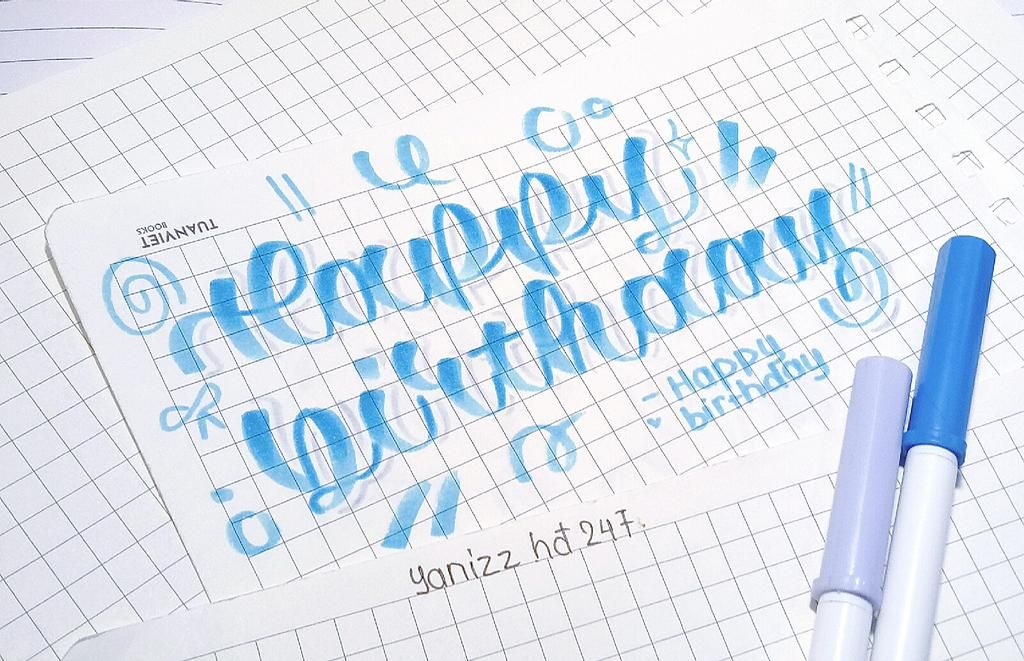 TUANVIET
BOOKS
Happy
birthday
- Happy
birthday
yanizz hđ 247.